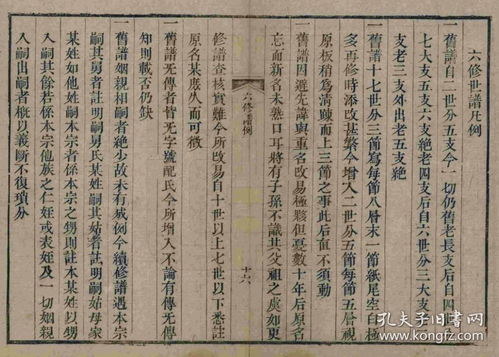 六修世譜凡例
一舊譜自二世分五支今一切仍舊老長支后自四
七大支五支六支絶老四支后自六世分三大支
支老三支外出老五支絶
一舊譜十七世分三節寫每節八層末一節紙尾空白極
多再修時添改甚繁今增入二世分五節每節五層視
原板稍為清疎而上三節之事此后直不須動
一舊譜因避先諱與重名改易極夥但憂數十年后原名
忘而新名未熟口耳將有子孫不識其父祖之
修譜查核實難今所改易自十世以上七世以下悉註
原名某庶久而可徵
一舊譜无傳者皆无字號配氏今所增入不論有傳无傳
知則載否仍缺
一舊譜姻親相嗣者絶少故未有成例今續修譜遇本宗
嗣其男者註明嗣男氏某姓嗣其姑者註明嗣姑母家
某姓如他姓嗣本宗者係本宗之甥則註本某姓以甥
入嗣其餘若係本宗他族之侄或表姪及一切姻親
入嗣出嗣者槪以義斷不復瑣分
六修譜例
十六
孔夫子旧书网